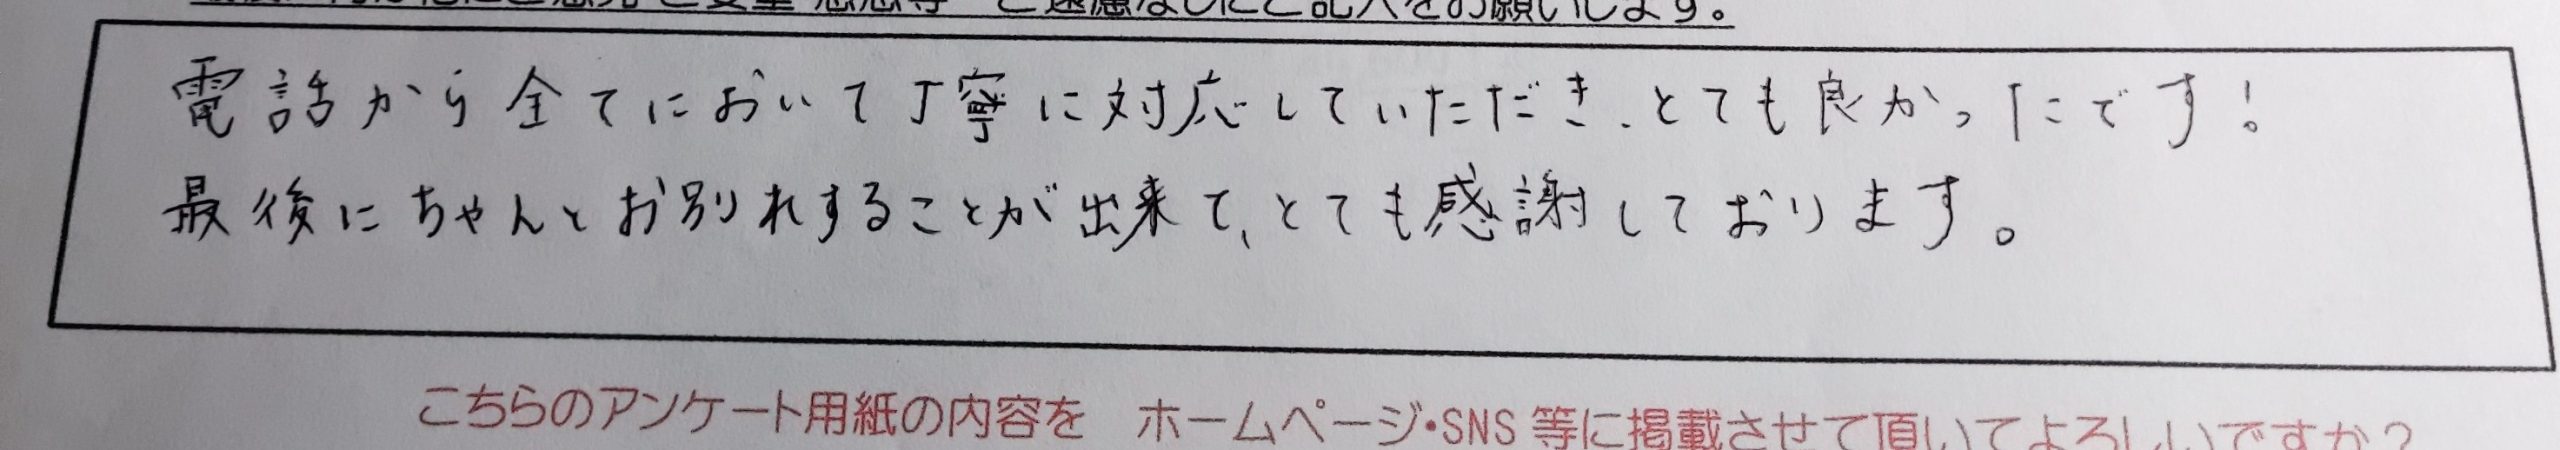 ご遠慮なしにご記入をお願いします。
電話から全てにおいて丁寧に対応していただき、とても良かったです！
最後にちゃんとお別れすることが出来て、とても感謝しております。
こちらのアンケート用紙の内容を　ホームページ・SNS等に掲載させて頂いてよろしいですか？